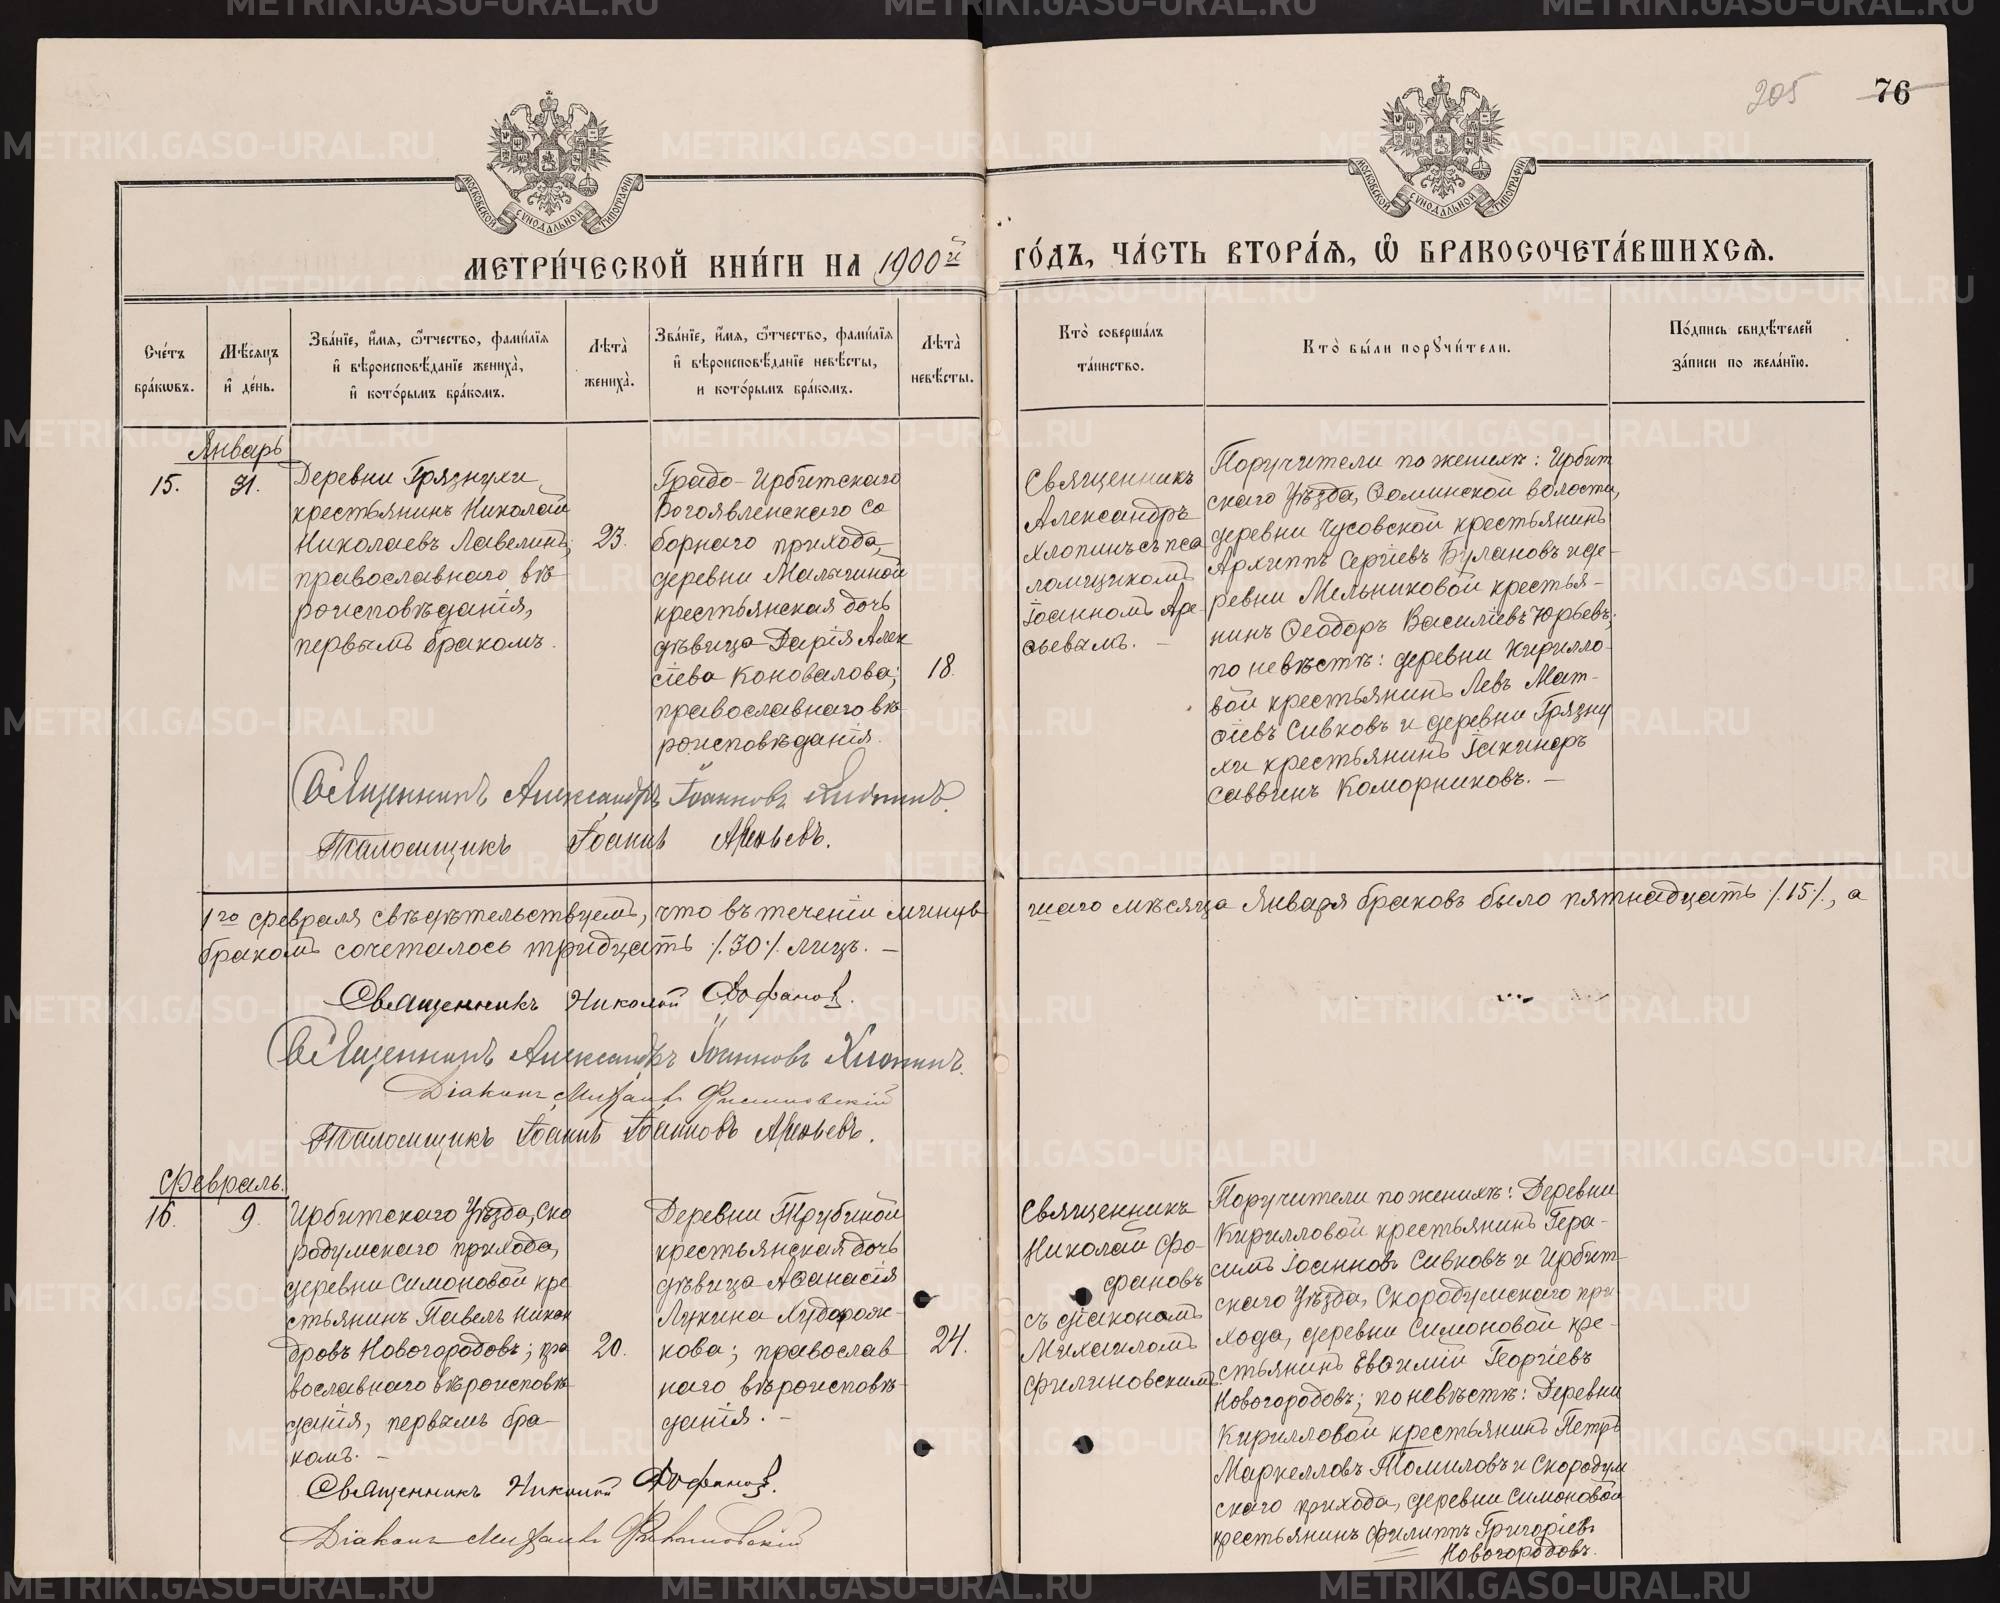 205
76
МЕТРИ́ЧЕСКОЙ КНИ́ГИ НА 1900й
ГО́ДЪ, ЧА́СТЬ ВТОРА́Я, Ѽ БРАКОСОЧЕТА́ВШИХСЯ.
МОСКОВСКОЙ СѴНОДАЛЬНОЙ ТИПОГРАФІИ
МОСКОВСКОЙ СѴНОДАЛЬНОЙ ТИПОГРАФІИ
Сче́тъ
бра́кѡвъ.
Мѣ́сяцъ
и҆ де́нь.
Зва́нїе, и҆́мя, ѻ҆́тчество, фами́лїя
и҆ вѣроисповѣ́данїе жениха̀,
и҆ кото́рымъ бра́комъ.
Лѣта̀
жениха̀.
Зва́нїе, и҆́мя, ѻ҆́тчество, фами́лїя
и҆ вѣроисповѣ́данїе невѣ́сты,
и кото́рымъ бра́комъ.
Лѣта̀
невѣ́сты.
Кто̀ соверша́лъ
та́инство.
Кто̀ бы́ли порꙋчи́тели.
По́дпись свидѣ́телей
за́писи по жела́нїю.
Январь
15.
31.
Деревни Грязнухи
крестьянинъ Николай
Николаевъ Лавелинъ,
православнаго вѣ-
роисповѣданія,
первымъ бракомъ.
23.
Градо-Ирбитскаго
Богоявленскаго Со
борнаго прихода,
деревни Мальгиной
крестьянская дочь
дѣвица Дарія Алек
сіева Коновалова;
православнаго вѣ-
роисповѣданія.
18.
Священникъ
Александръ
Хлопинъ съ пса
ломщикомъ
Іоанномъ Аре-
фьевымъ. —
Поручители по женихѣ: Ирбит
скаго Уѣзда, Ѳоминской волости,
деревни Чусовской крестьянинъ
Архиппъ Сергіевъ Булановъ и де-
ревни Мельниковой крестья-
нинъ Ѳеодоръ Василіевъ Юрьевъ;
по невѣстѣ: деревни Кирилло-
вой крестьянинъ Левъ Мат-
ѳіевъ Сивковъ и деревни Грязну
хи крестьянинъ Іакинфъ
Саввинъ Коморниковъ. —
Священникъ Александръ Іоанновъ Хлопинъ.
Псаломщикъ Іоаннъ Арефьевъ.
1го февраля свѣдѣтельствуемъ, что въ теченіи минув
шаго мѣсяца Января браковъ было пятнадцать /.15./, а
бракомъ сочеталось тридцать /.30./. лицъ. —
Священникъ Николай Фофановъ.
Священникъ Александръ Іоанновъ Хлопинъ.
Діаконъ Михаилъ Филиновскій
Псаломщикъ Іоаннъ Іоанновъ Арефьевъ.
Февраль.
16.
9.
Ирбитскаго Уѣзда, Ско
родумскаго прихода,
деревни Симоновой кре
стьянинъ Павелъ Никан
дровъ Новогородовъ; пра
вославнаго вѣроисповѣ-
данія, первымъ бра-
комъ. —
20.
Деревни Трубиной
крестьянская дочь
дѣвица Аѳанасія
Лукина Худорож-
кова; православ
наго вѣроисповѣ-
данія. —
24.
Священникъ
Николай Фо-
фановъ
съ діакономъ
Михаиломъ
Филиновскимъ.
Поручители по женихѣ: Деревни
Кирилловой крестьянинъ Гера-
симъ Іоанновъ Сивковъ и Ирбит-
скаго Уѣзда, Скородумскаго при
хода, деревни Симоновой кре-
стьянинъ Евѳимій Георгіевъ
Новогородовъ; по невѣстѣ: Деревни
Кирилловой крестьянинъ Петръ
Маркелловъ Томиловъ и Скородум
скаго прихода, деревни Симоновой
крестьянинъ Филиппъ Григоріевъ
Новогородовъ.
Священникъ Николай Фофановъ.
Діаконъ Михаилъ Филиновскій
METRIKI.GASO-URAL.RU